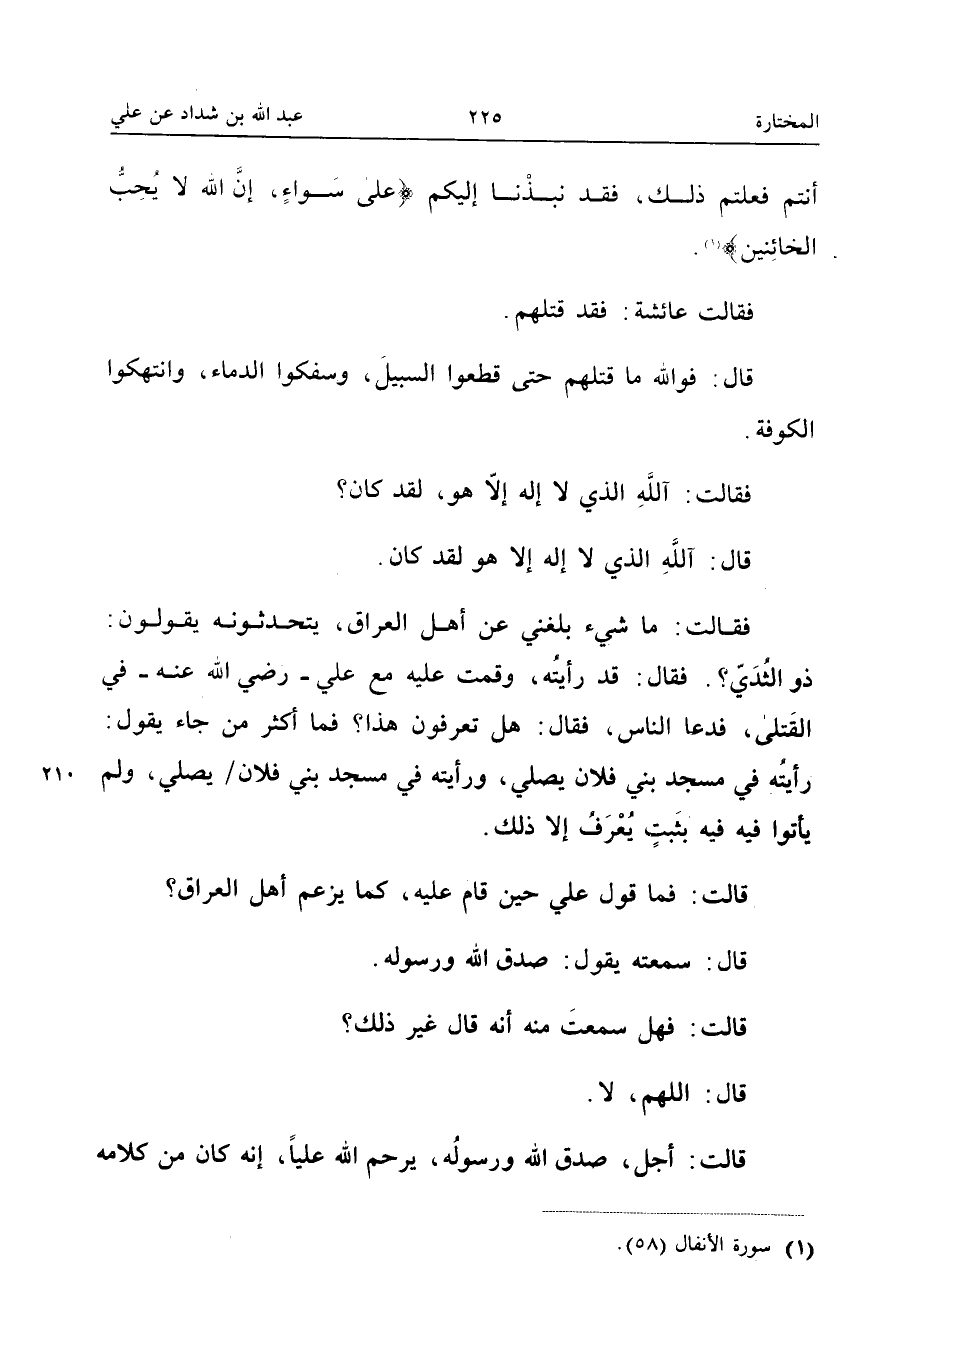 المختارة ٢٢٥ عبد الله بن شداد عن علي
أنتم فعلتم ذلـك، فقـد نبـذْنـا إليكم ﴿علىٰ سَـواءٍ، إنَّ الله لا يُحِبُّ
الخائِنين﴾(١).
فقالت عائشة: فقد قتلهم.
قال: فوالله ما قتلهم حتى قطعوا السبيلَ، وسفكوا الدماء، وانتهكوا
الكوفة.
فقالت: آللَّهِ الذي لا إله إلاّ هو، لقد كان؟
قال: آللَّهِ الذي لا إله إلا هو لقد كان.
فقـالت: ما شيء بلغني عن أهـل العـراق، يتحـدثـونـه يقـولـون:
ذو الثُدَيّ؟. فقال: قد رأيتُه، وقمت عليه مع علي - رضي الله عنـه - في
القَتلىٰ، فدعا الناس، فقال: هل تعرفون هذا؟ فما أكثر من جاء يقول:
رأيتُه في مسجد بني فلان يصلي، ورأيته في مسجد بني فلان/ يصلي، ولم ٢١٠
يأتوا فيه فيه بثَبتٍ يُعْرَفُ إلا ذلك.
قالت: فما قول علي حين قام عليه، كما يزعم أهل العراق؟
قال: سمعته يقول: صدق الله ورسوله.
قالت: فهل سمعتَ منه أنه قال غير ذلك؟
قال: اللهم، لا.
قالت: أجل، صدق الله ورسولُه، يرحم الله علياً، إنه كان من كلامه
(١) سورة الأنفال (٥٨).